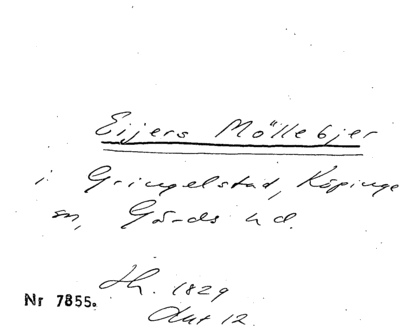 Eijers Möllebjer
i Gringelstad, Köpinge
sn, Gärds hd.
Hh. 1829
Aut 12.
Nr 7855.